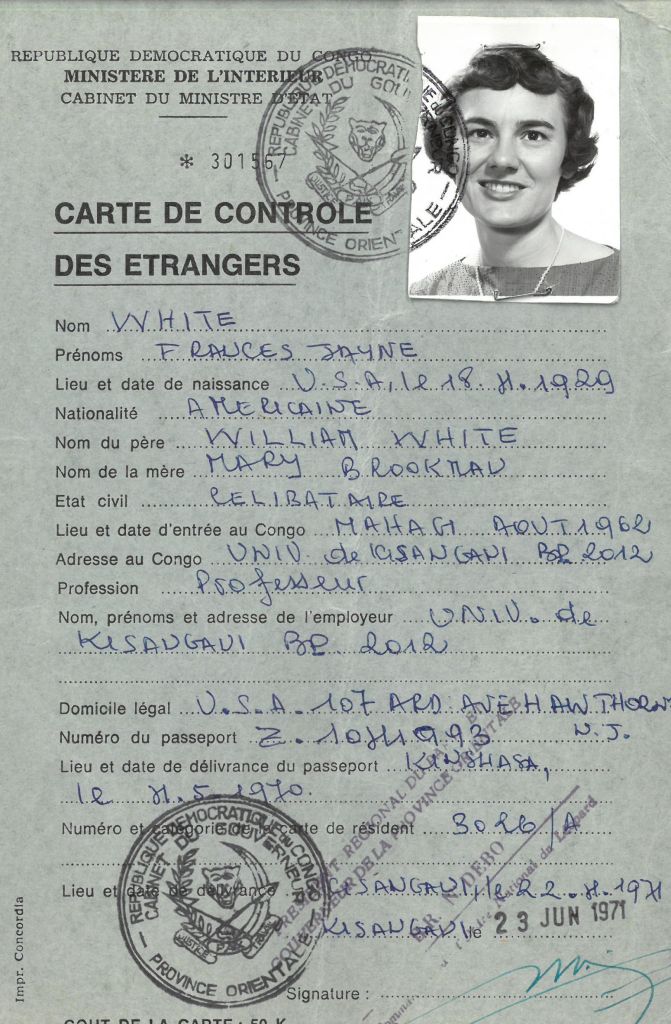 REPUBLIQUE DEMOCRATIQUE DU CONGO
MINISTERE DE L'INTERIEUR
CABINET DU MINISTRE D'ETAT
* 301567
REPUBLIQUE DEMOCRATIQUE DU CONGO
CABINET DU GOUVERNEUR
JUSTICE PAIX
— PROVINCE ORIENTALE —
CARTE DE CONTROLE
DES ETRANGERS
Nom WHITE
Prénoms FRANCES JAYNE
Lieu et date de naissance U.S.A, le 18. 4. 1929
Nationalité AMERICAINE
Nom du père WILLIAM WHITE
Nom de la mère MARY BROOKMAN
Etat civil CELIBATAIRE
Lieu et date d'entrée au Congo MAHAGI AOUT 1962
Adresse au Congo UNIV. de KISANGANI BP. 2012
Profession Professeur
Nom, prénoms et adresse de l'employeur UNIV. de
KISANGANI BP. 2012
Domicile légal U.S.A. 107 ARD AVE HAWTHORN
N.J.
Numéro du passeport Z.
Lieu et date de délivrance du passeport KINSHASA,
le 5. 1970.
Numéro et catégorie de la carte de résident 3026/A
Lieu et date de délivrance KISANGANI, le 22. 1971
KISANGANI, le 23 JUN 1971
REPUBLIQUE DEMOCRATIQUE DU CONGO
CABINET DU GOUVERNEUR
JUSTICE
— PROVINCE ORIENTALE —
DE LA PROVINCE ORIENTALE
National du Léopard
Signature :
COUT DE LA CARTE : 50 K
Impr. Concordia